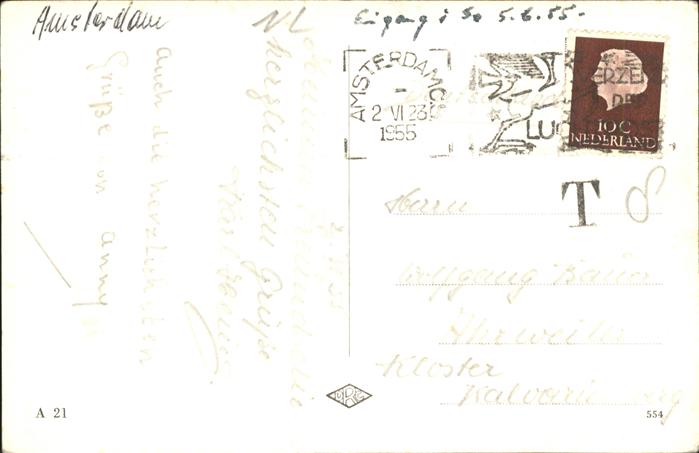 Amsterdam
Eigang: So 5.6.55.
AMSTERDAM CS
2 VI 23
1955
VERZEN
PER
LUC
10 C
NEDERLAND
T 8
Herrn
Wolfgang Bauer
Ahrweiler
Kloster
Kalvarienberg
2. VI. 55
herzlichsten Grüße
auch die herzlichsten
Grüße von Anny
A 21
554